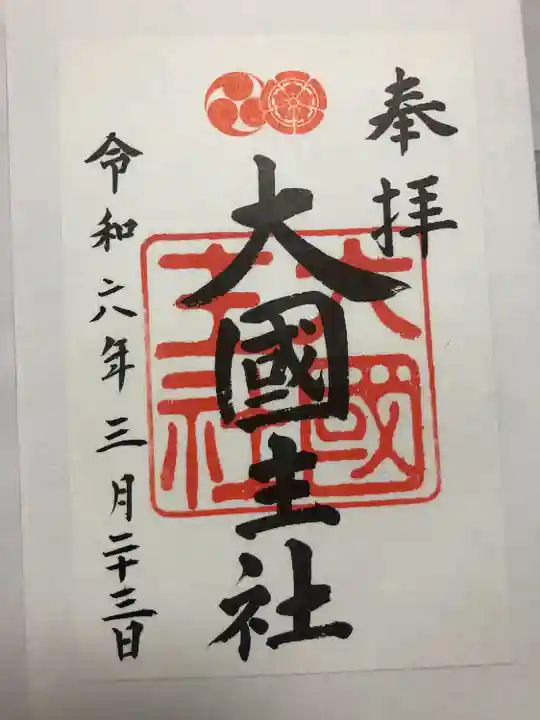 奉拝
大國主社
大國主社
令和六年三月二十三日